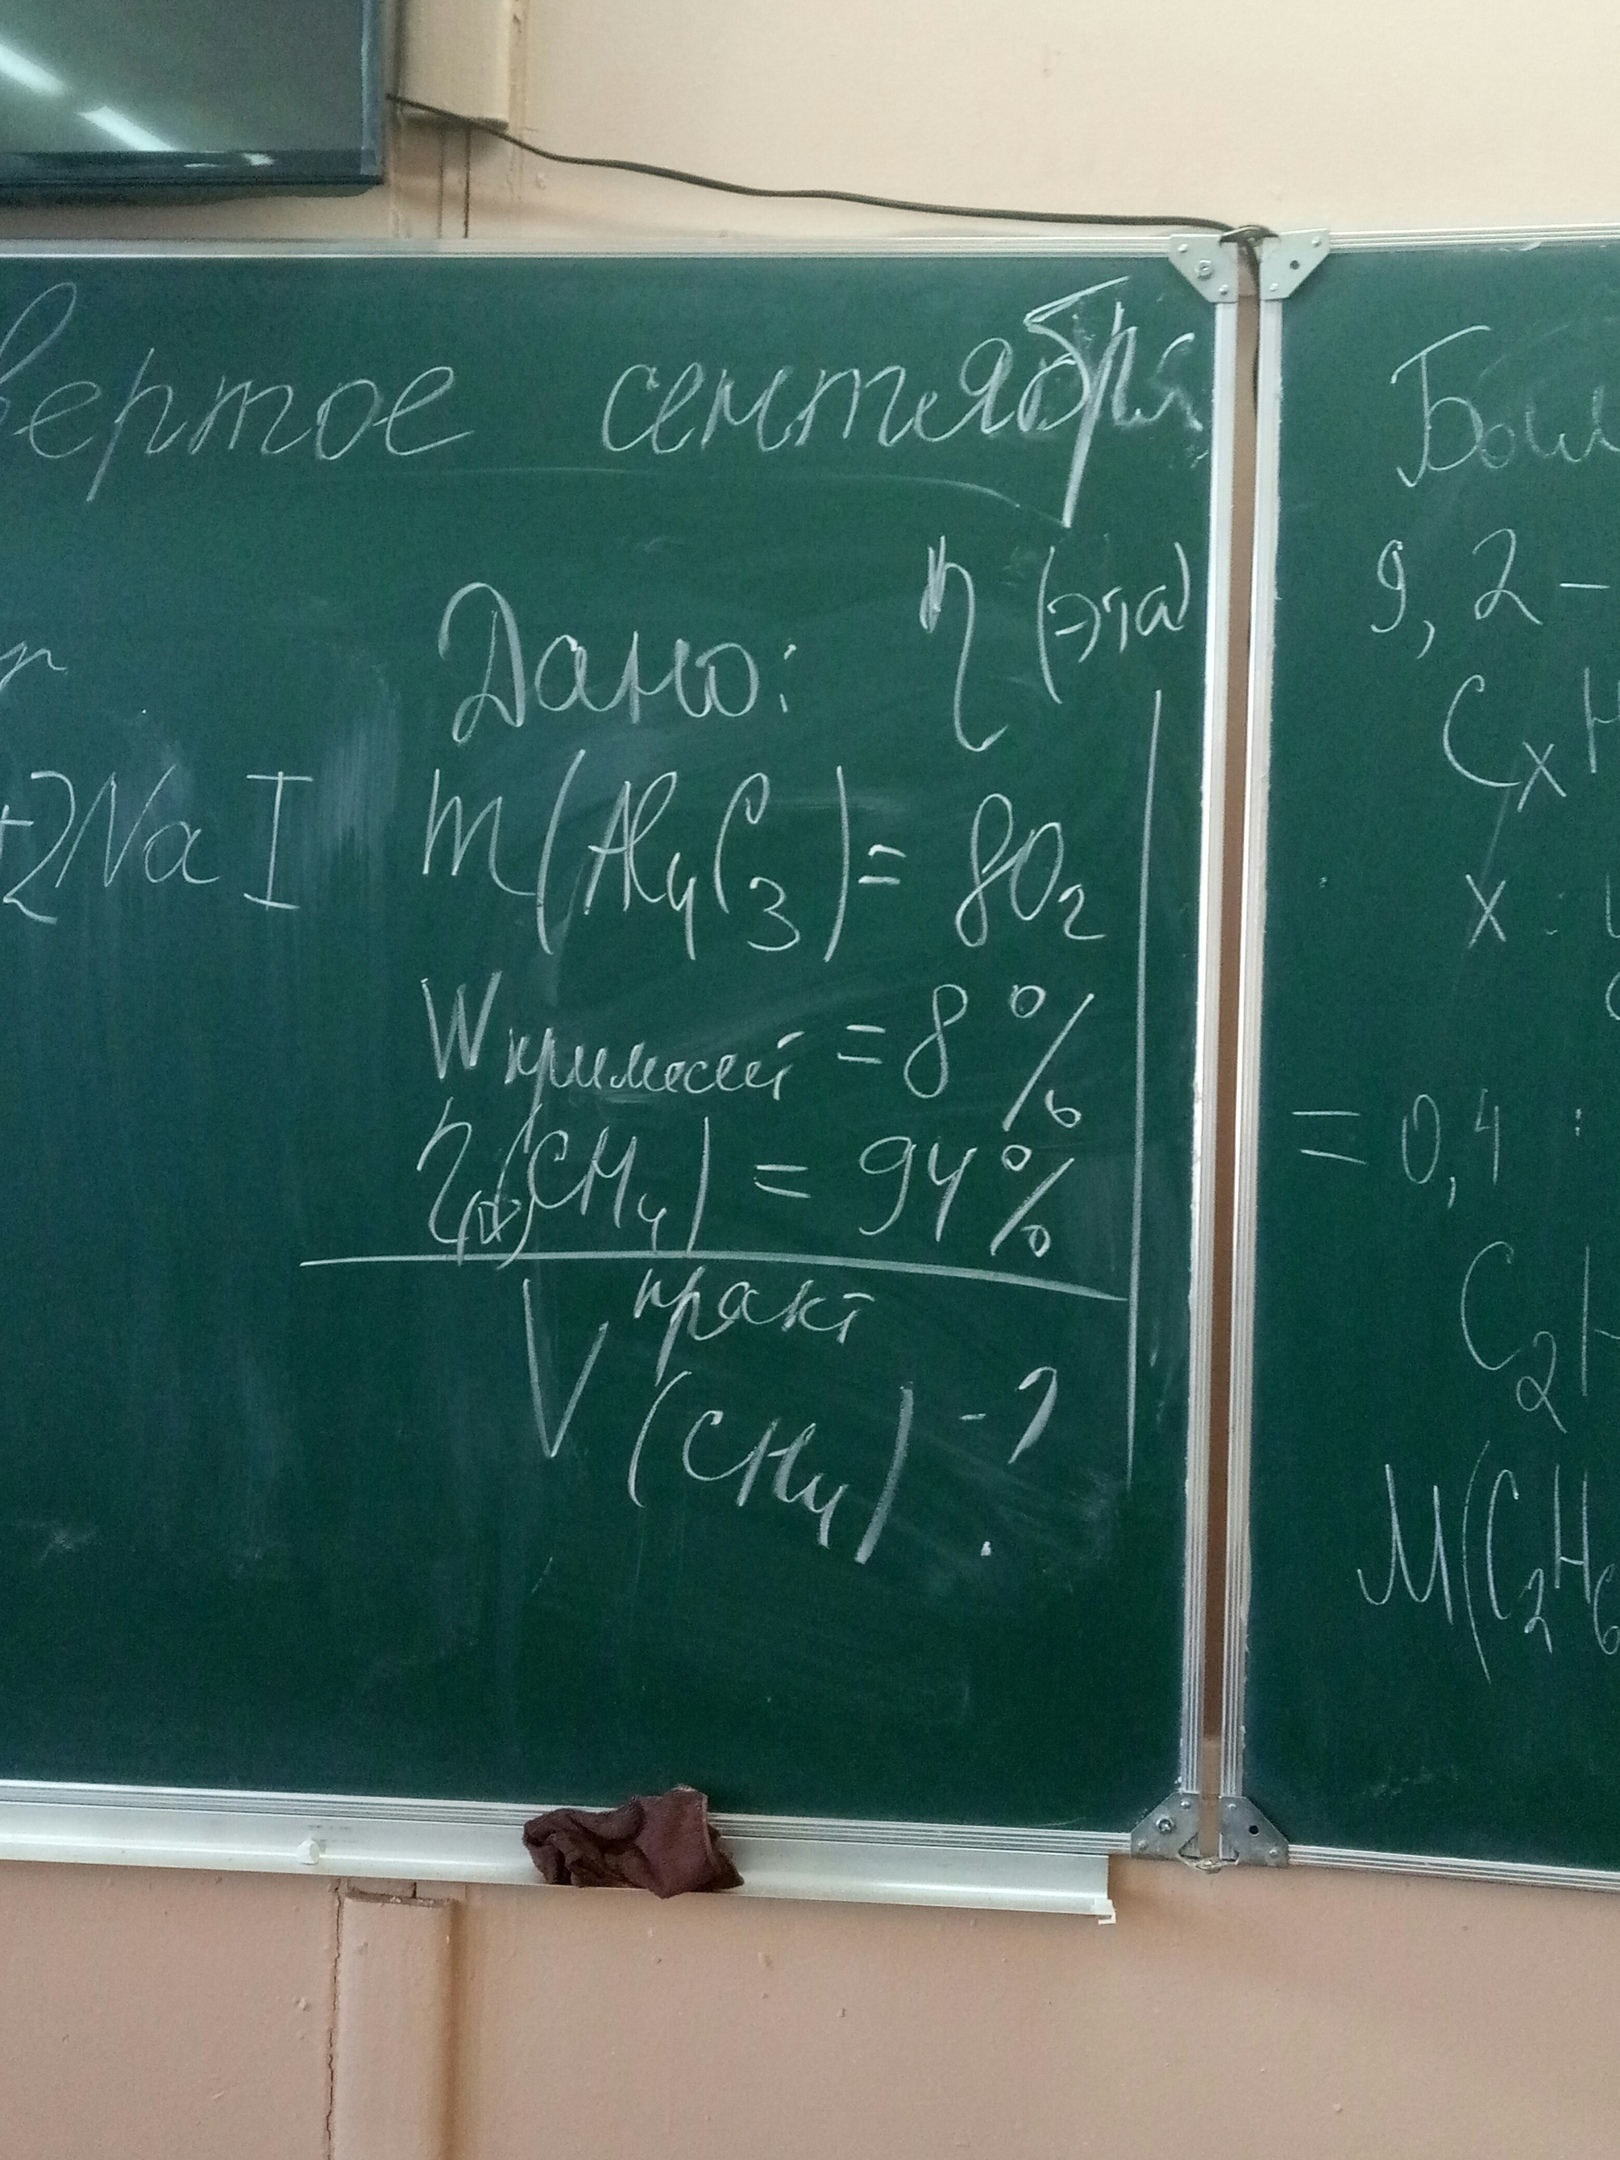 вертое сентября
η (эта)
Дано:
+2NaI
m(Al₄C₃) = 80г
W примесей = 8%
η(CH₄) = 94%
V практ (CH₄) - ?
9,2 -
CₓH
x :
= 0,4 :
C₂H
M(C₂H₆